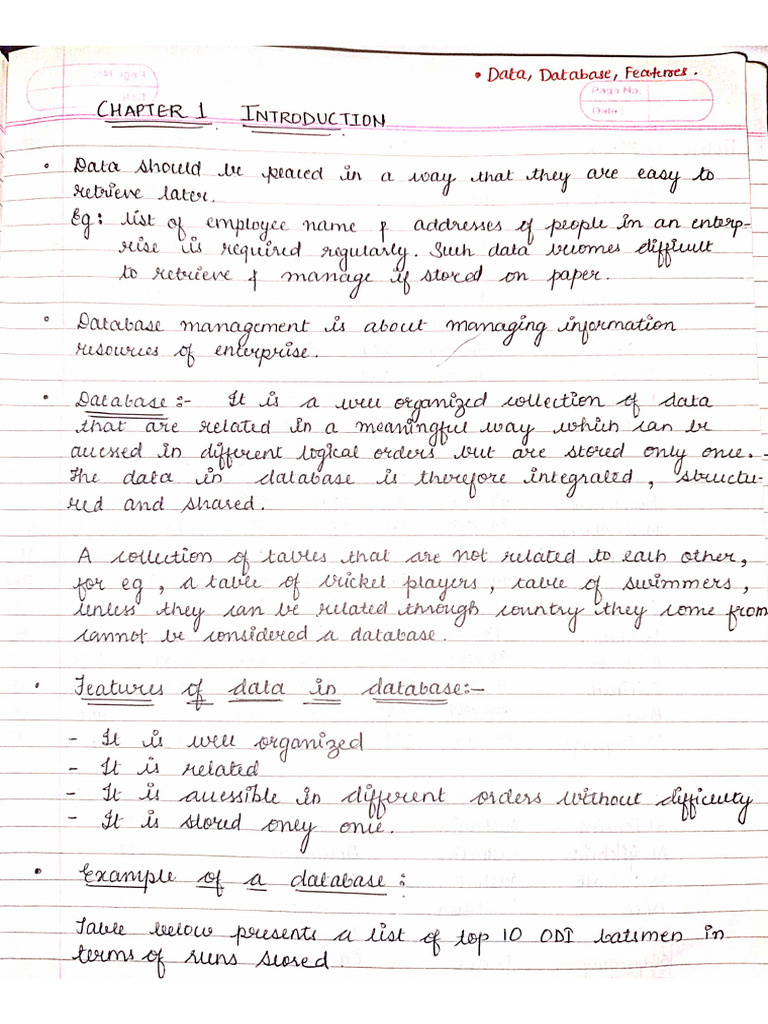 • Data, Database, Features.
Page No.
Date:
CHAPTER 1 INTRODUCTION
• Data should be placed in a way that they are easy to
retrieve later.
Eg: list of employee name & addresses of people in an enterp-
rise is required regularly. Such data becomes difficult
to retrieve & manage if stored on paper.
• Database management is about managing information
resources of enterprise.
• Database:- It is a well organized collection of data
that are related in a meaningful way which can be
accessed in different logical orders but are stored only once.
The data in database is therefore integrated, structu-
red and shared.
A collection of tables that are not related to each other,
for eg, a table of cricket players, table of swimmers,
unless they can be related through country they come from
cannot be considered a database.
• Features of data in database:-
- It is well organized
- It is related
- It is accessible in different orders without difficulty
- It is stored only once.
• Example of a database:
Table below presents a list of top 10 ODI batsmen in
terms of runs scored.